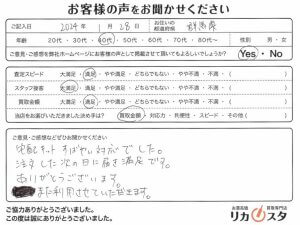 お客様の声をお聞かせください
ご記入日 2024年 1月 28日 お住いの都道府県 群馬県
年齢 20代・30代・40代・50代・60代・70代・80代〜 性別 男・女
ご意見・ご感想を弊社ホームページにお客様の声として掲載させて頂いてもよろしいでしょうか? Yes・No
査定スピード 大満足・満足・どちらでもない・やや不満・不満
スタッフ接客 大満足・満足・どちらでもない・やや不満・不満
買取金額 大満足・満足・どちらでもない・やや不満・不満
当店をお選びいただきました決め手は? 買取金額・対応力・利便性・スピード・その他( )
ご意見・ご感想などぜひお聞かせください
宅配キットすばやい対応でした。
注文した次の日に届き満足です。
ありがとうございます。
また利用させていただきます。
ご協力ありがとうございました。
この度は誠にありがとうございました。
お酒高価買取専門店
リカスタ